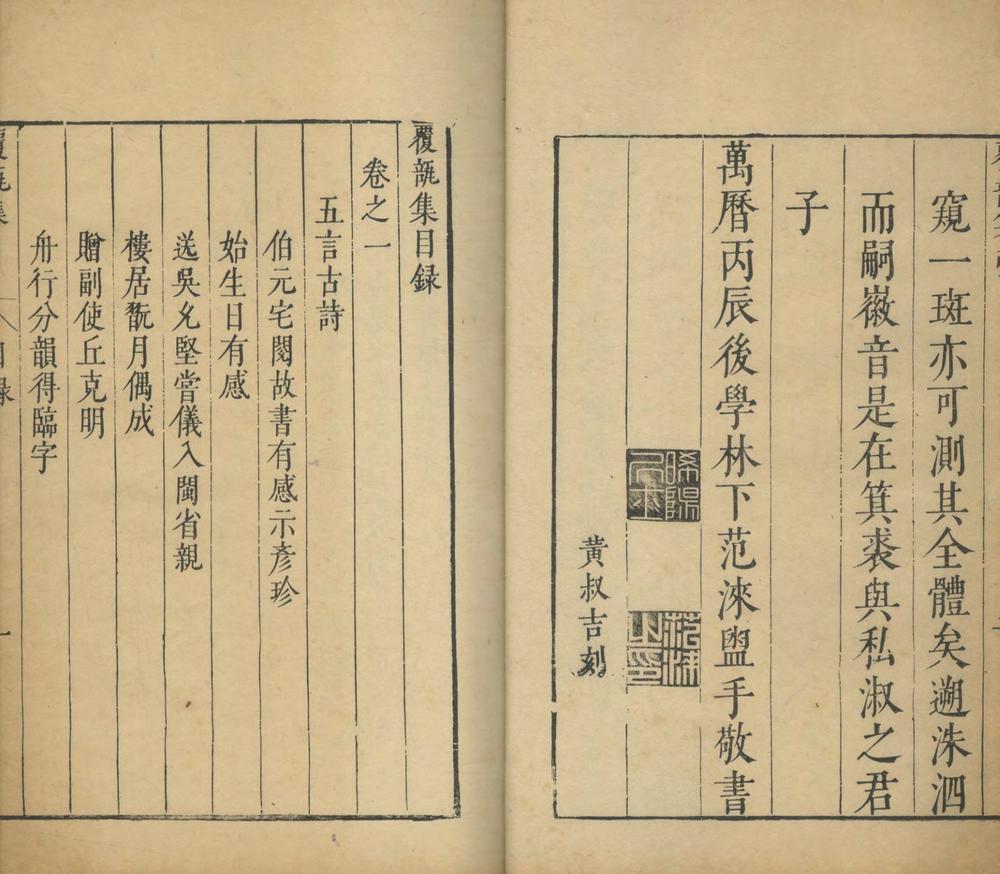 窺一斑亦可測其全體矣遡洙泗
而嗣徽音是在箕裘與私淑之君
子
萬曆丙辰後學林下范淶盥手敬書
范淶之印
黃叔吉刻
覆瓿集目録
卷之一
五言古詩
伯元宅閱故書有感示彥珍
始生日有感
送吳允堅嘗儀入閩省親
樓居翫月偶成
贈副使丘克明
舟行分韻得臨字